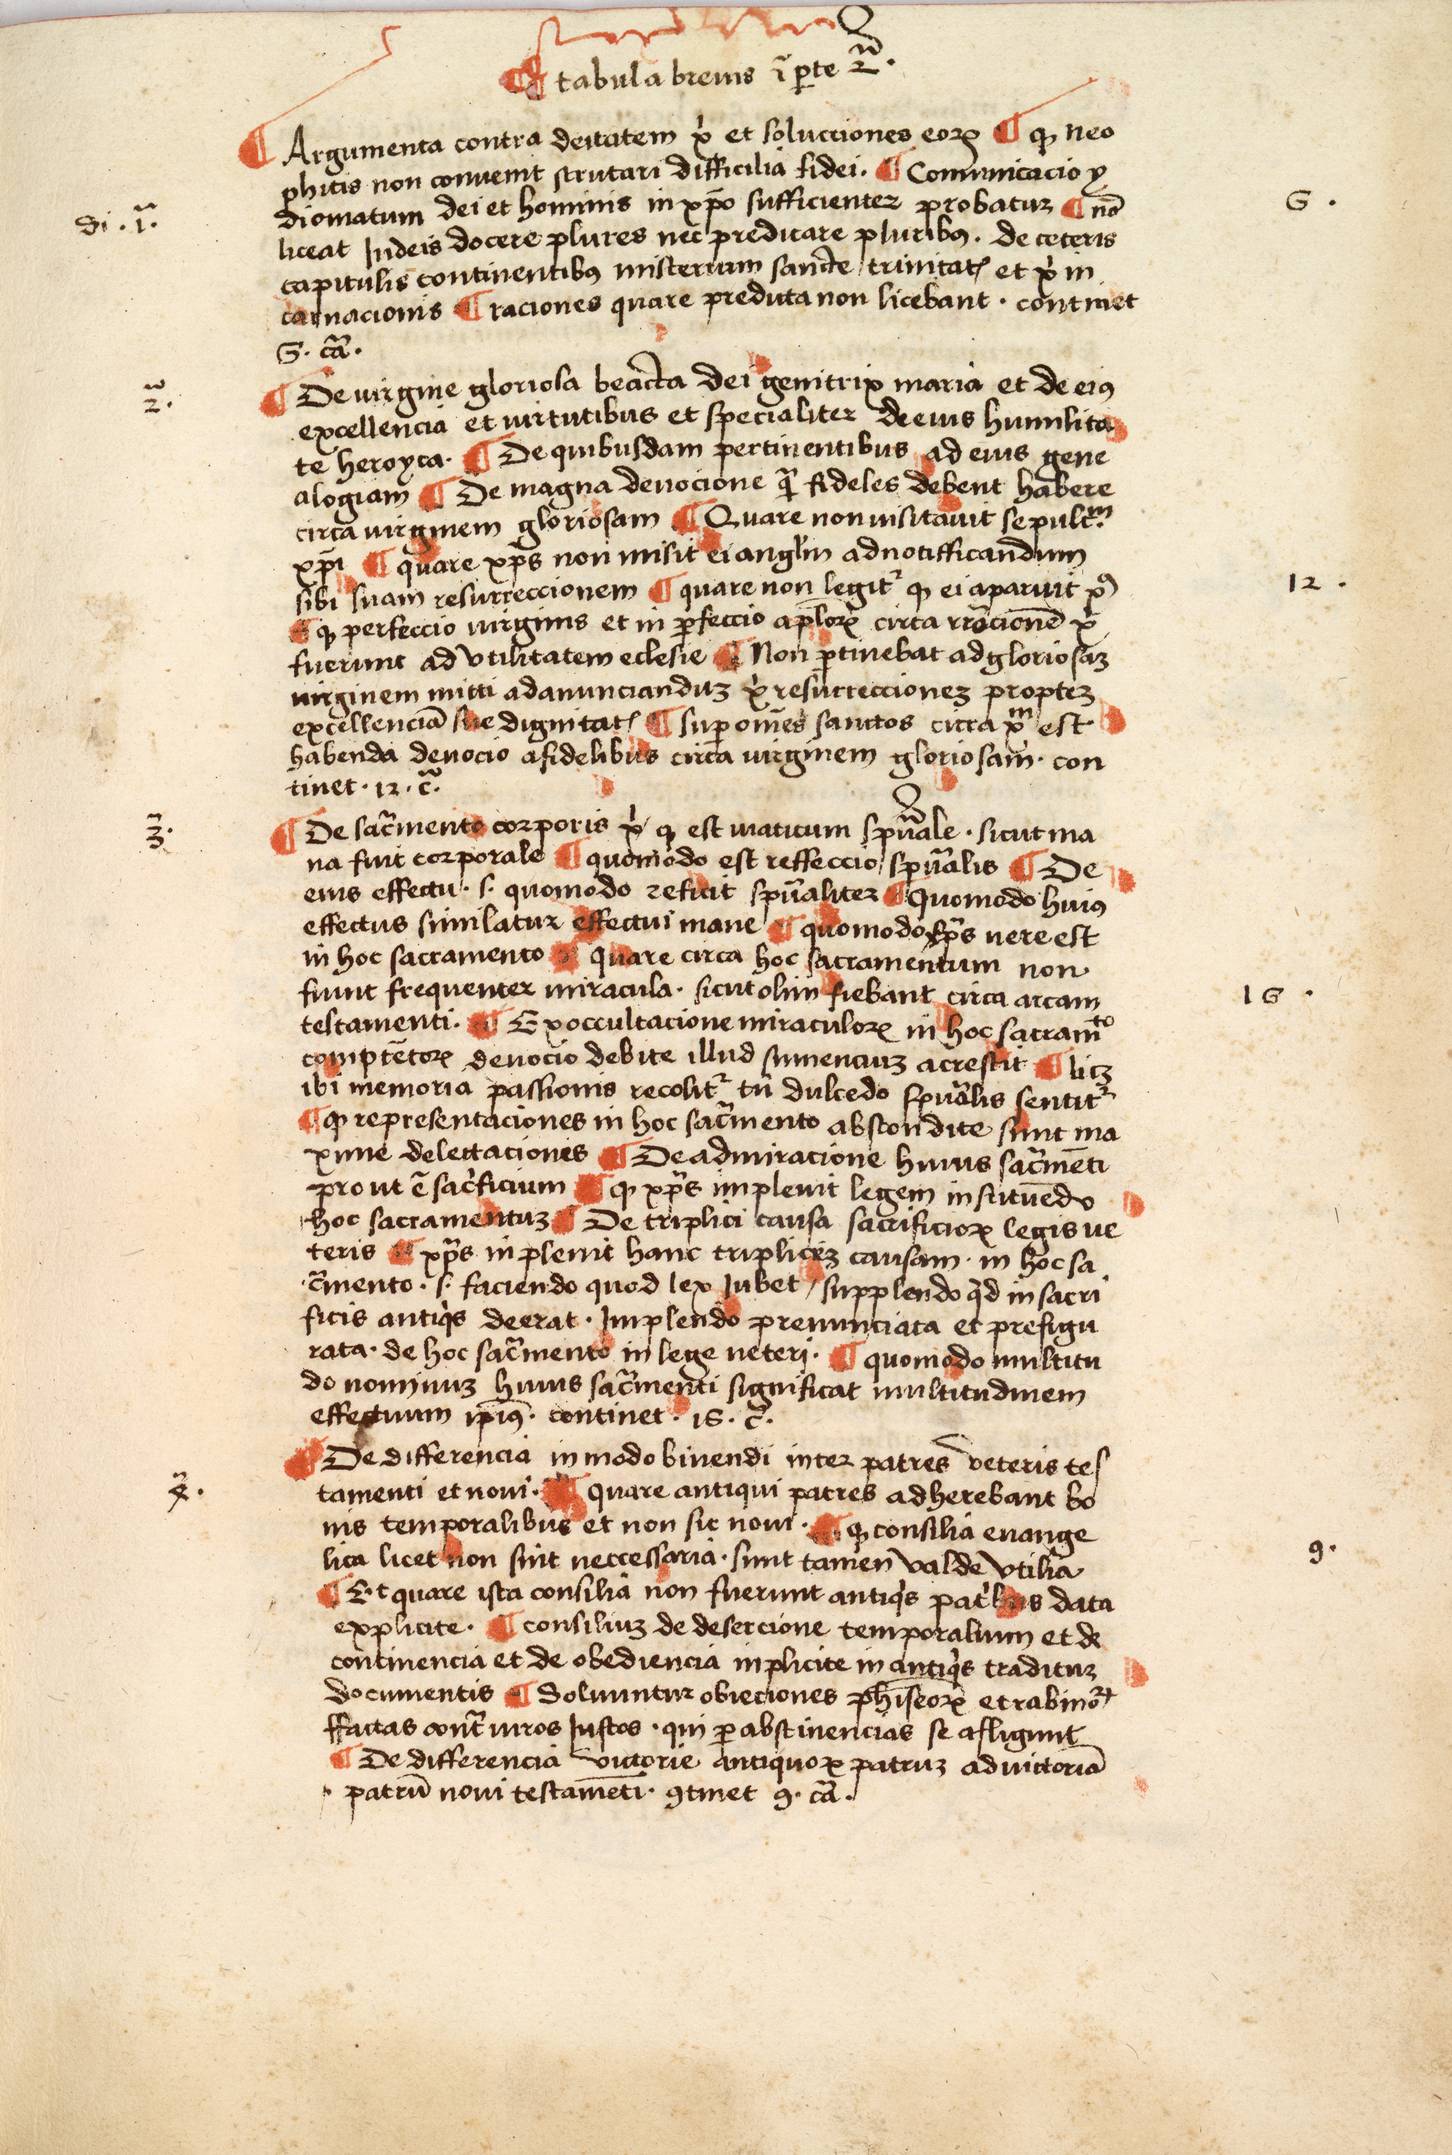 ¶ tabula breuis ī ꝑte 2ª.
¶ Argumenta contra deitatem xͥ et solucciones eoꝝ ¶ ꝙ neo
phitis non conuenit scrutari difficilia fidei. ¶ Comunicacio y
di. 1ª. diomatum dei et hominis in xp̄o sufficienter probatur ¶ nō G.
liceat Iudeis docere plures nec predicare pluribꝰ. de ceteris
capitulis continentibꝰ misterium sancte trinitatꝭ et xͥ in
carnacionis ¶ raciones quare predicta non licebant. continet
G. cā.
¶ De uirgine gloriosa beata dei genitrix maria et de eiꝰ
2ª. excellencia et uirtutibus et specialiter de eius humilita
te heroyca. ¶ De quibusdam pertinentibus ad eius gene
alogiam ¶ De magna deuocione q̄ fideles debent habere
circa uirginem gloriosam ¶ Quare non uisitauit sepulcᵐ.
xp̄i ¶ quare xp̄s non misit ei anglm̄ ad notifficandum
sibi suam resurreccionem ¶ quare non legitᷣ ꝙ ei aparuit xꝰ 12.
¶ ꝙ perfeccio uirginis et in ꝑfeccio apl̄oꝝ circa rr̄ccionē xͥ
fuerunt ad vtilitatem eclesie ¶ Non ꝑtinebat ad gloriosaꝫ
uirginem mitti ad anunciandūꝫ xͥ resurreccioneꝫ propter
excellenciā sue dignitatꝭ ¶ suꝑ om̄es sanctos circa xᵐ est
habenda deuocio a fidelibus circa uirginem gloriosam. con
tinet. 12. cª.
3ª. ¶ De sacͣmento corporis xͥ ꝙ est uiaticum spūale. sicut ma
na fuit corporale ¶ quomodo est reffeccio spūalis ¶ De
eius effectu. s. quomodo reficit spūaliter ¶ Quomodo huiꝰ
effectus similatur effectui mane ¶ quomodo xp̄s uere est
in hoc sacramento ¶ quare circa hoc sacramentum non
fiunt frequenter miracula. sicut olim fiebant circa arcam 1G.
testamenti. ¶ Ex occultacione miraculoꝝ in hoc sacramᵗᵒ
comptētoꝝ deuocio debite illud sumenciuꝫ acrescit ¶ licꝫ
ibi memoria passionis recolitᷣ tn̄ dulcedo spūalis sentitᷣ
¶ ꝙ representaciones in hoc sacͣmento abscondite sunt ma
xime delectaciones ¶ De admiracione huius sacͣmēti
prout ē sacͥficium ¶ ꝙ xp̄s impleuit legem instituēdo
hoc sacramentuꝫ ¶ De triplici causa sacrificioꝝ legis ue
teris ¶ xp̄s inpleuit hanc tripliceꝫ causam. in hoc sa
cͣmento. s. faciendo quod lex Iubet / supplendo qd̄ in sacri
ficis antiqͥs deerat. Implendo prenunciata et prefigu
rata. de hoc sacͣmento in lege ueteri. ¶ quomodo multitu
do nominuꝫ huius sacͣmenti significat multitudinem
effectuum ip̄iꝰ. continet. 1G. cª.
¶ De differencia in modo biuendi inter patres veteris tes
4ª. tamenti et noui. ¶ quare antiqui patres adherebant bo
nis temporalibus et non sic noui. ¶ ꝙ consilia euange
lica licet non sint neccessaria. sunt tamen valde vtilia 9.
¶ Et quare ista consilia non fuerunt antiqͥs patͥbus data
explicite. ¶ consiliuꝫ de desercione temporalium et de
continencia et de obediencia inplicite in antiqͥs traditur
documentis ¶ Soluuntur obiecciones phīseoꝝ et rabinoꝝ
ffactas contͣ uiros Iustos. qui ꝑ abstinencias se afligunt
¶ De differencia victorie antiquoꝝ patruꝫ ad uictoriā
patrū noui testamēti. ꝯtinet 9. cā.